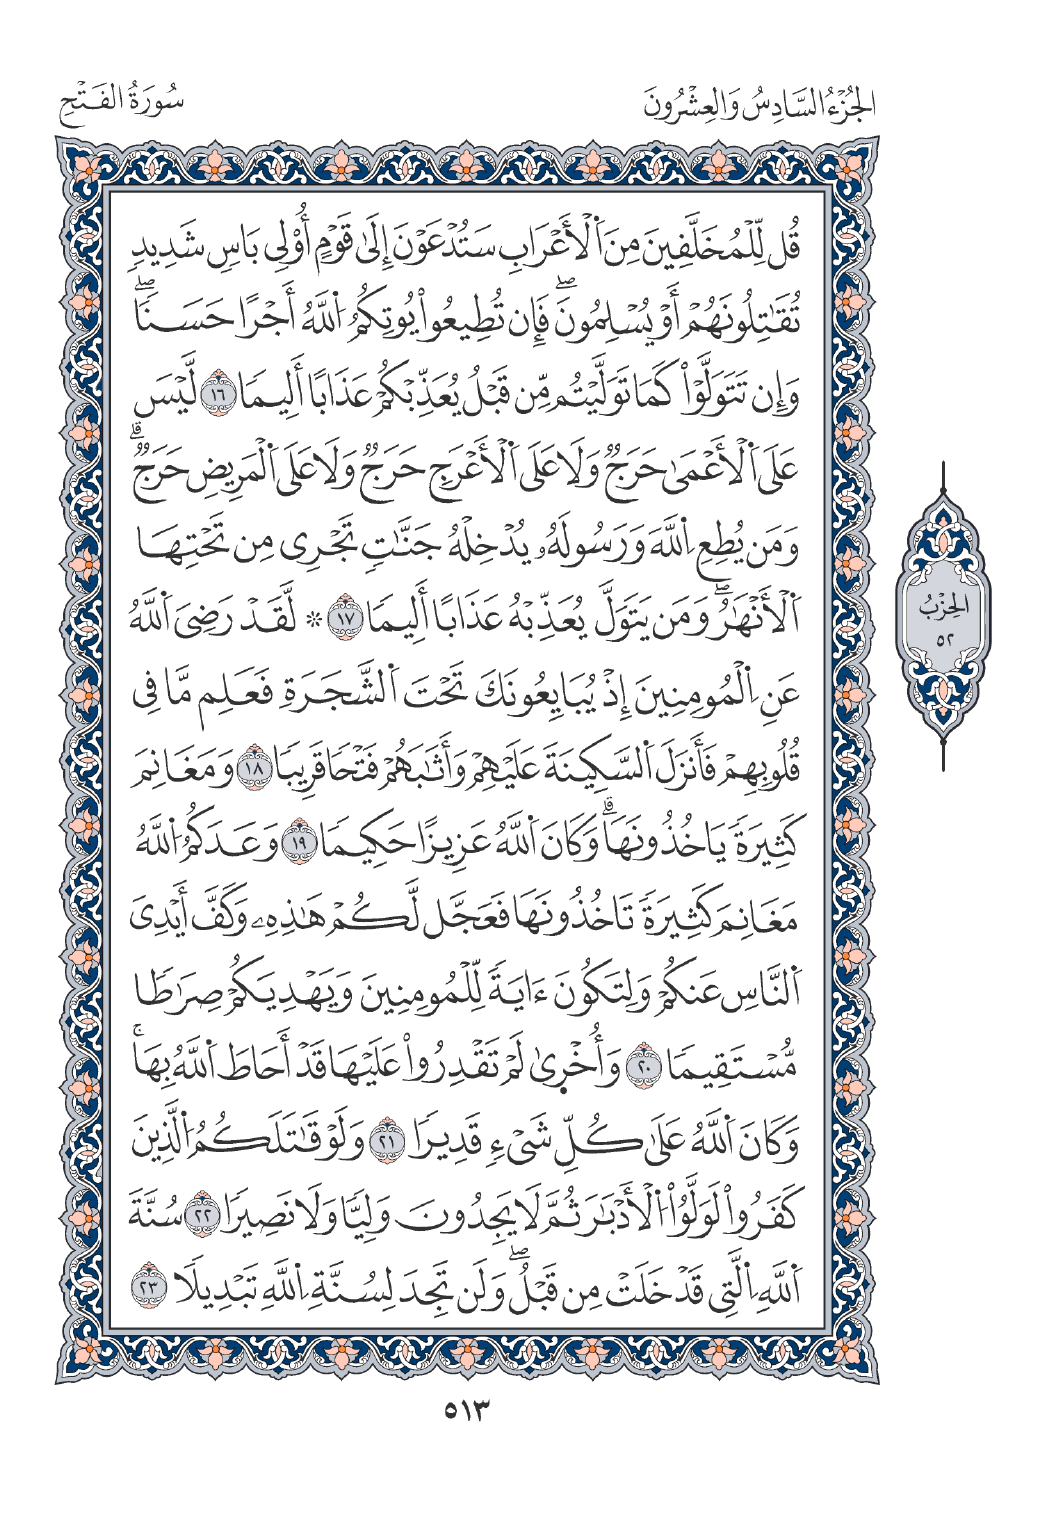 الجُزْءُ السَّادِسُ وَالعِشْرُونَ
سُورَةُ الفَتْحِ
قُل لِّلْمُخَلَّفِينَ مِنَ اَ۬لْأَعْرَابِ سَتُدْعَوْنَ إِلَىٰ قَوْمٍ أُوْلِي بَاسٖ شَدِيدٖ
تُقَٰتِلُونَهُمْ أَوْ يُسْلِمُونَۖ فَإِن تُطِيعُواْ يُوتِكُمُ اُ۬للَّهُ أَجْرًا حَسَنٗاۖ
وَإِن تَتَوَلَّوْاْ كَمَا تَوَلَّيْتُم مِّن قَبْلُ يُعَذِّبْكُمْ عَذَابًا أَلِيمٗا ١٦ لَّيْسَ
عَلَى اَ۬لْأَعْمَىٰ حَرَجٞ وَلَا عَلَى اَ۬لْأَعْرَجِ حَرَجٞ وَلَا عَلَى اَ۬لْمَرِيضِ حَرَجٞۗ
وَمَن يُطِعِ اِ۬للَّهَ وَرَسُولَهُۥ يُدْخِلْهُ جَنَّٰتٖ تَجْرِي مِن تَحْتِهَا
اَ۬لْأَنْهَٰرُۖ وَمَن يَتَوَلَّ يُعَذِّبْهُ عَذَابًا أَلِيمٗا ١٧ ۞ لَّقَدْ رَضِيَ اَ۬للَّهُ
عَنِ اِ۬لْمُومِنِينَ إِذْ يُبَايِعُونَكَ تَحْتَ اَ۬لشَّجَرَةِ فَعَلِم مَّا فِي
قُلُوبِهِمْ فَأَنزَلَ اَ۬لسَّكِينَةَ عَلَيْهِمْ وَأَثَٰبَهُمْ فَتْحٗا قَرِيبٗا ١٨ وَمَغَانِمَ
كَثِيرَةٗ يَاخُذُونَهَاۗ وَكَانَ اَ۬للَّهُ عَزِيزًا حَكِيمٗا ١٩ وَعَدَكُمُ اُ۬للَّهُ
مَغَانِمَ كَثِيرَةٗ تَاخُذُونَهَا فَعَجَّل لَّكُمْ هَٰذِهِۦ وَكَفَّ أَيْدِيَ
اَ۬لنَّاسِ عَنكُمْ وَلِتَكُونَ ءَايَةٗ لِّلْمُومِنِينَ وَيَهْدِيَكُمْ صِرَٰطٗا
مُّسْتَقِيمٗا ٢٠ وَأُخْر۪ىٰ لَمْ تَقْدِرُواْ عَلَيْهَا قَدْ أَحَاطَ اَ۬للَّهُ بِهَاۚ
وَكَانَ اَ۬للَّهُ عَلَىٰ كُلِّ شَيْءٖ قَدِيرٗا ٢١ وَلَوْ قَٰتَلَكُمُ اُ۬لَّذِينَ
كَفَرُواْ لَوَلَّوُاْ اُ۬لْأَدْبَٰرَ ثُمَّ لَا يَجِدُونَ وَلِيّٗا وَلَا نَصِيرٗا ٢٢ سُنَّةَ
اَ۬للَّهِ اِ۬لَّتِي قَدْ خَلَتْ مِن قَبْلُۖ وَلَن تَجِدَ لِسُنَّةِ اِ۬للَّهِ تَبْدِيلٗا ٢٣
الحِزْبُ
٥٢
٥١٣